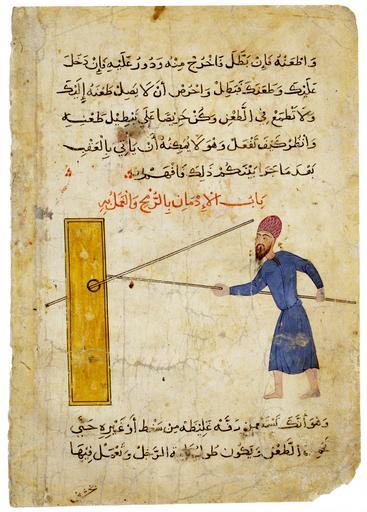 واطعنه فإن بطل فاخرج منه ودور عليه فإن دخل
عليك وطعنك فبطل واحرص أن لا يصل طعنه إليك
ولا تطمع في الطعن وكن حريصا على تبطيل طعنه
وانظر كيف تفعل وهو لا يمكنه أن يأتي بالعقب
بعد ما جرا بينكم ذلك وافهم
باب الإدمان بالرمح والعمل به
وهو أنك تستعمل دفه غليظه من سنط أو غيره حتى
الطعن ويكون طول قامة الرجل وتعمل فيها